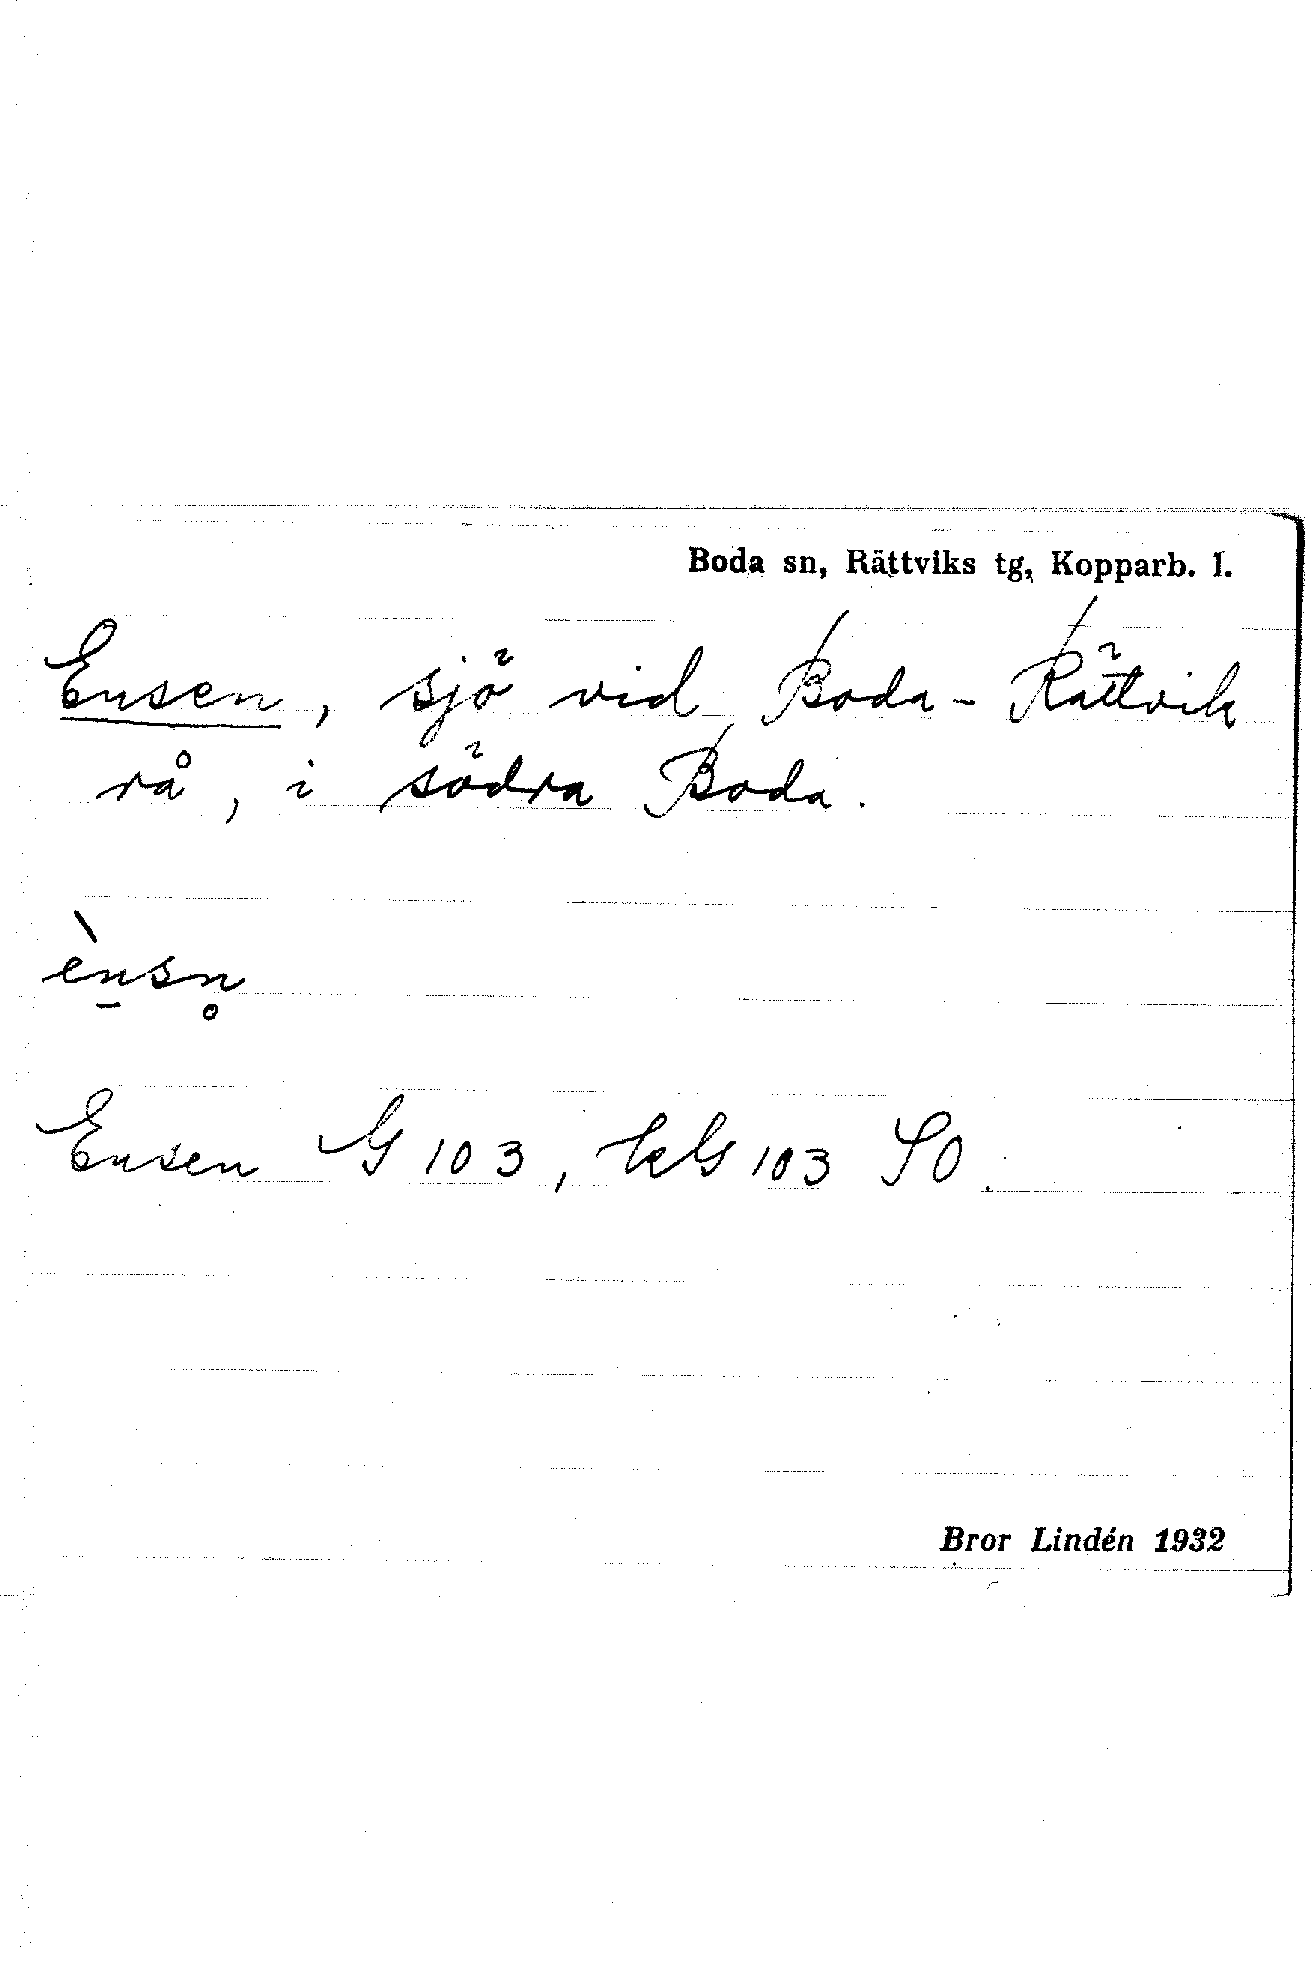 Boda sn, Rättviks tg, Kopparb. l.
Ensen, sjö vid Boda-Rättvik
rå, i södra Boda.
ènsn̥
Ensen G 103, kG 103 SO.
Bror Lindén 1932